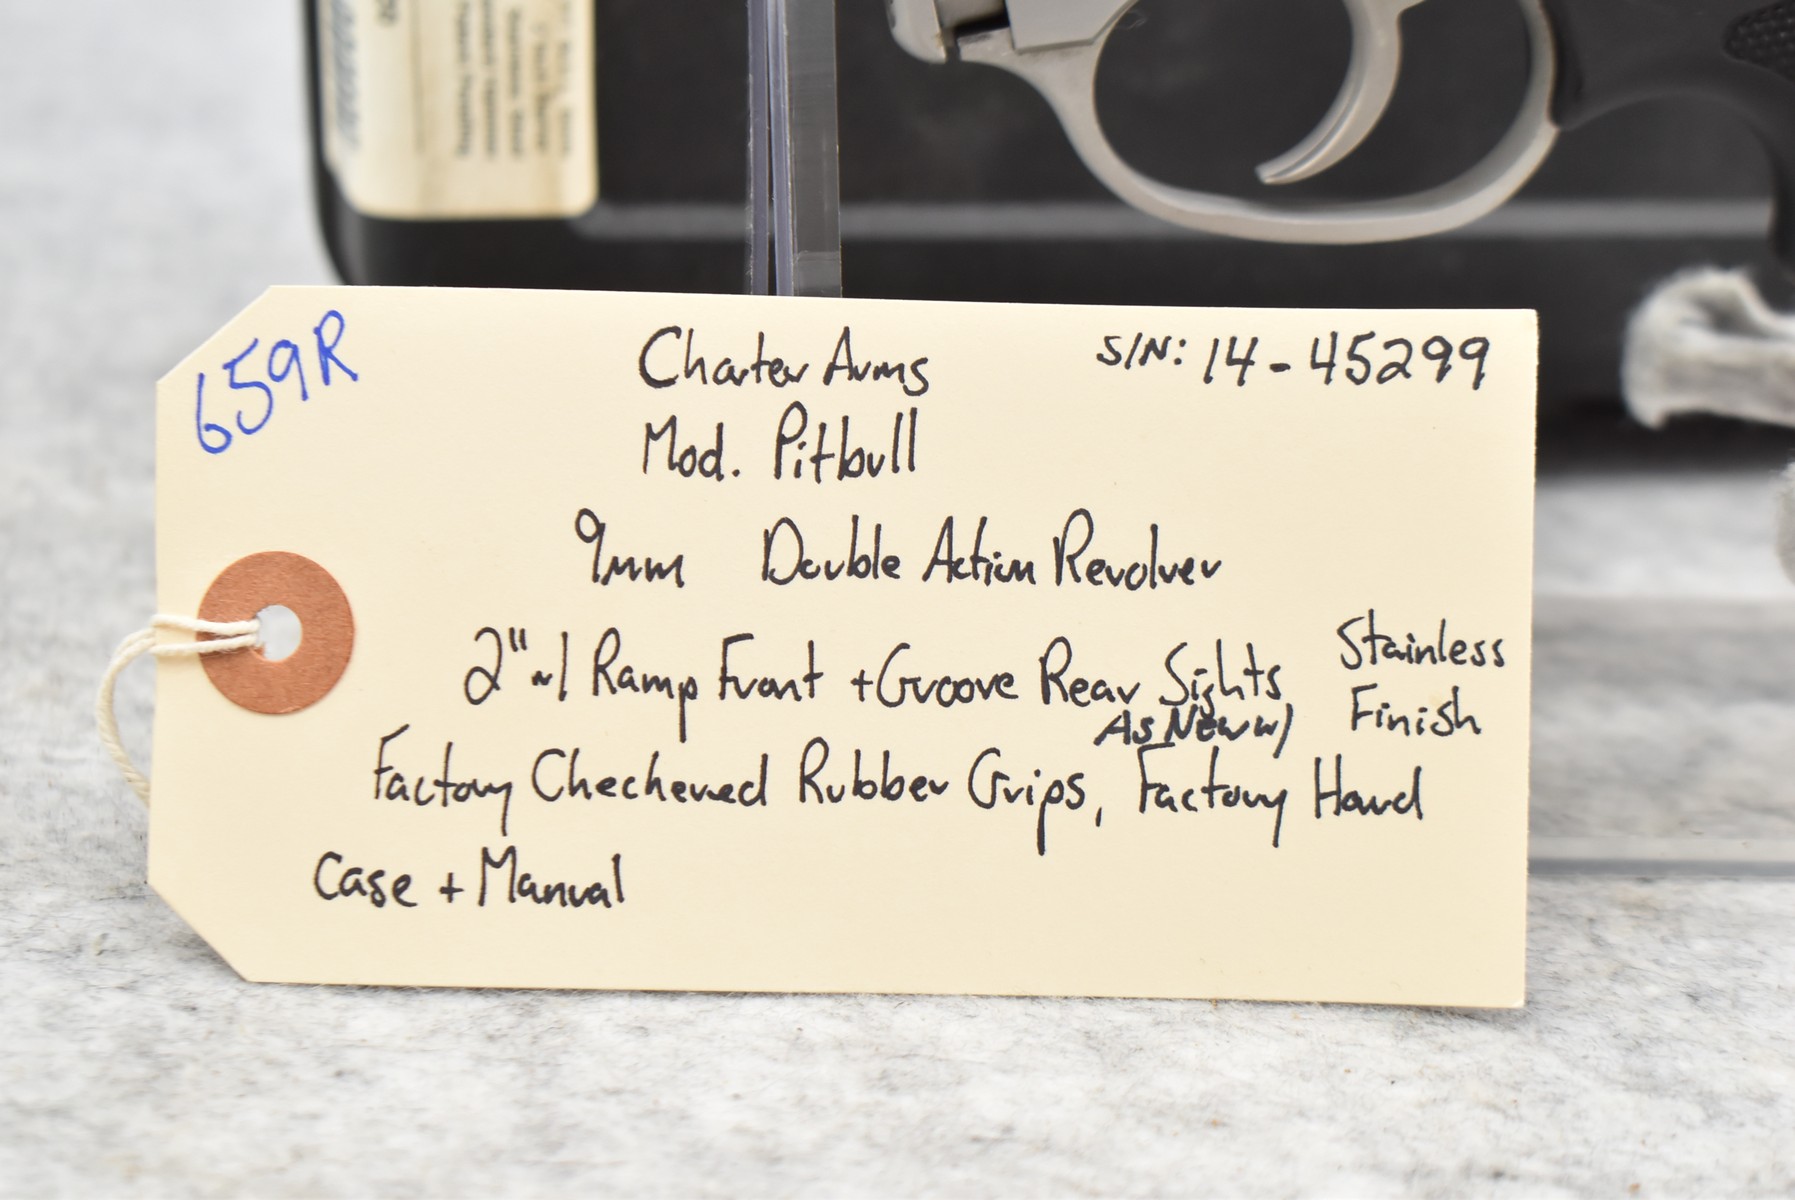 659R
Charter Arms
S/N: 14-45299
Mod. Pitbull
9mm Double Action Revolver
2" w/ Ramp Front + Groove Rear Sights
Stainless
Finish
As New w/
Factory Checkered Rubber Grips, Factory Hard
Case + Manual